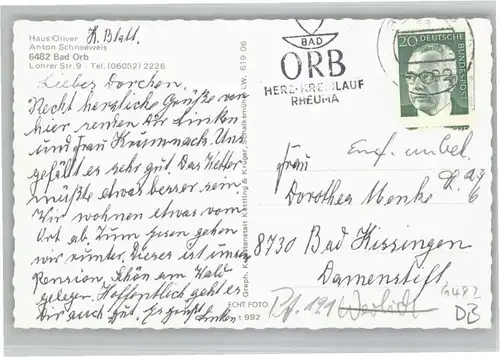 Haus Oliver K. Blatt.
Anton Schneeweis
6482 Bad Orb
Lohrer Str. 9 - Tel. (06052) 2226
Liebes Dorchen,
Recht herzliche Grüße von
hier senken Dir Linken
und Frau Krumnack. Uns
gefällt es sehr gut. Das Wetter
müßte etwas besser sein.
Wir wohnen etwas vom
Ort ab. Zum essen gehen
wir runter. Dieses ist unsere
Pension, Schön am Wald
gelegen. Hoffentlich geht es
Dir auch gut. Es grüßt Linken
Graph. Kunstanstalt Kettling & Krüger, Schalksmühle i.W. 619 06
ECHT FOTO
t 992
BAD
ORB
HERZ-KREISLAUF
RHEUMA
20 DEUTSCHE BUNDESPOST
Empf. unbek.
Frau
Dorothea Menke
8730 Bad Kissingen
Damenstift
1482
DB